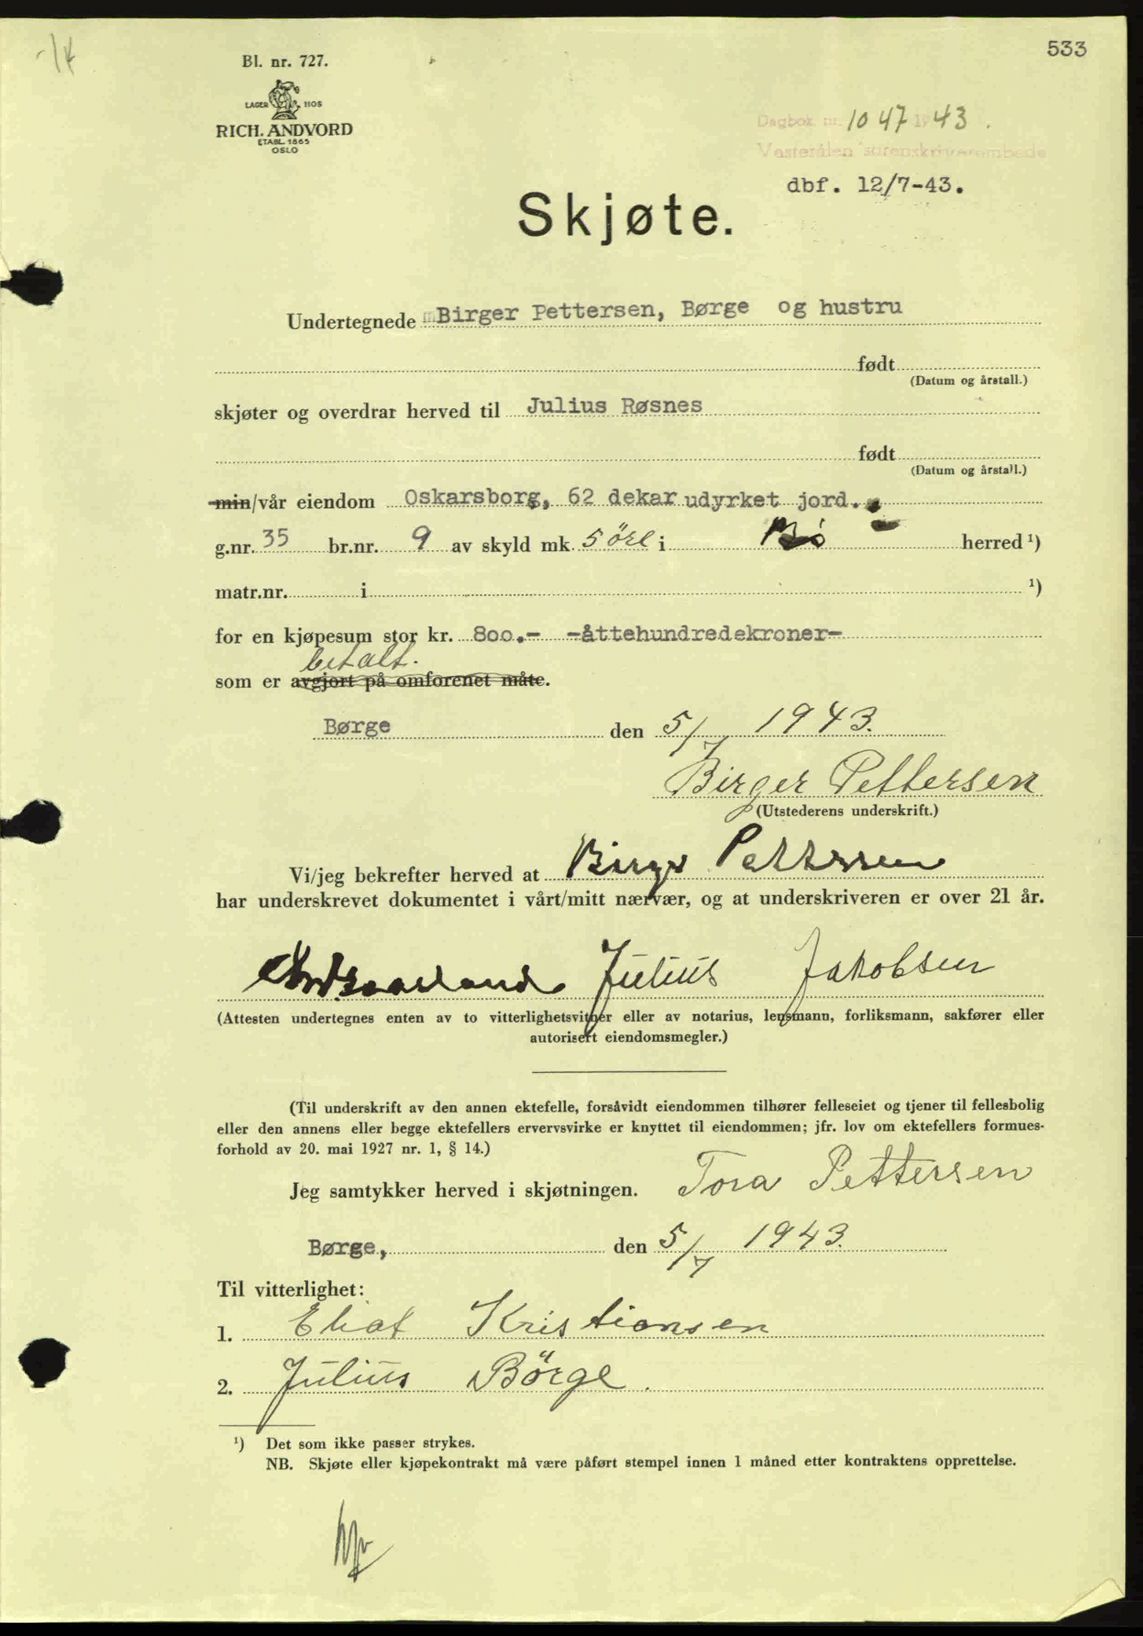 533
Bl. nr. 727.
LAGER HOS
RICH. ANDVORD
ETABL. 1865
OSLO
Dagbok nr. 1047 1943.
Vesterålen sorenskriverembede
dbf. 12/7-43.
Skjøte.
Undertegnede Birger Pettersen, Børge og hustru
født
(Datum og årstall.)
skjøter og overdrar herved til Julius Røsnes
født
(Datum og årstall.)
min/vår eiendom Oskarsborg, 62 dekar udyrket jord.
g.nr. 35 br.nr. 9 av skyld mk. 5 öre i Bø herred ¹)
matr.nr. i ¹)
for en kjøpesum stor kr. 800.- -åttehundredekroner-
betalt.
som er avgjort på omforenet måte.
Børge den 5/7 1943.
Birger Pettersen
(Utstederens underskrift.)
Vi/jeg bekrefter herved at Birger Pettersen
har underskrevet dokumentet i vårt/mitt nærvær, og at underskriveren er over 21 år.
Julius Jakobsen
(Attesten undertegnes enten av to vitterlighetsvitner eller av notarius, lensmann, forliksmann, sakfører eller
autorisert eiendomsmegler.)
(Til underskrift av den annen ektefelle, forsåvidt eiendommen tilhører felleseiet og tjener til fellesbolig
eller den annens eller begge ektefellers ervervsvirke er knyttet til eiendommen; jfr. lov om ektefellers formues-
forhold av 20. mai 1927 nr. 1, § 14.)
Jeg samtykker herved i skjøtningen. Tora Pettersen
Børge, den 5/7 1943.
Til vitterlighet:
1. Kristiansen
2. Julius Börge.
¹) Det som ikke passer strykes.
NB. Skjøte eller kjøpekontrakt må være påført stempel innen 1 måned etter kontraktens opprettelse.